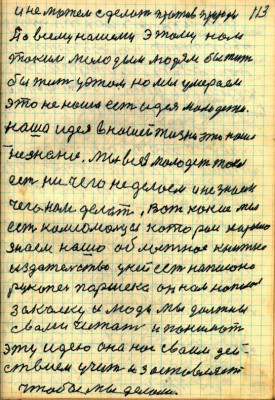 и не можем сделат против природы 113
По всему нашему этому нам
таким молодым людям бытит
бы жит у этом но мы умераем
это не наша ест идея молодежи.
наша идея в нашей жизни это наше
незнание. мы вся молодеж тока
ест ни чего не делаем и не знаем
чего нам делат, Вот какие мы
ест комсомолцы которые хорошо
знаем нашо областное книжно
издателство у ней ест написано
рукопес он нам
закалку и люди мы должны
свами читат и понимат
эту идею она нас своим дей-
ствием учит и заставляет
чтобы мы делали.